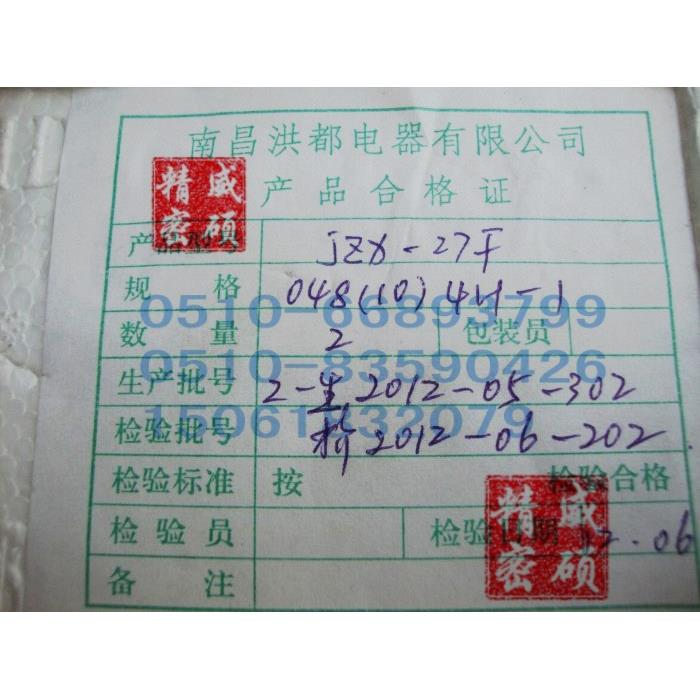 南昌洪都电器有限公司
产品合格证
精密
威硕
产品型号 JZX-27F
规格 048(10)4H-1
0510-66893799
数量 2 包装员
0510-83590426
生产批号 2-生2012-05-302
15061832079
检验批号 检2012-06-202
检验标准 按 检验合格
检验员 检验日期 12.06
精密
威硕
备注